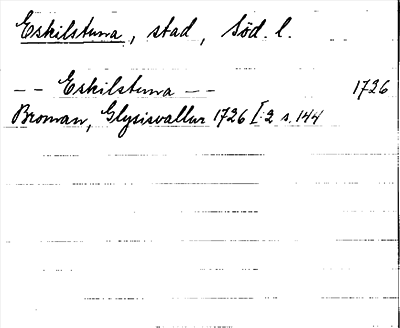 Eskilstuna, stad, Söd. l.
-- Eskilstuna -- 1726
Broman, Glysisvallur 1726 I:2 s. 144